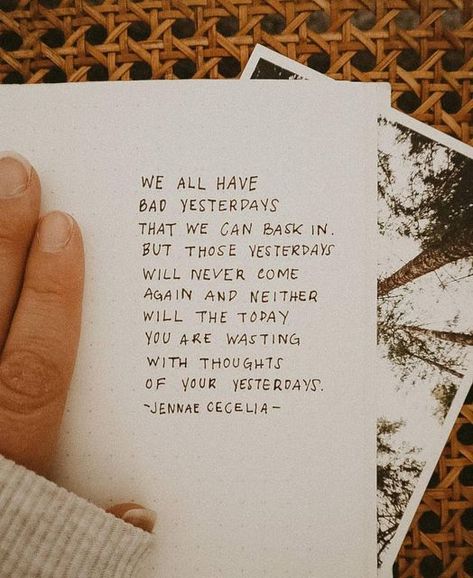 WE ALL HAVE
BAD YESTERDAYS
THAT WE CAN BASK IN.
BUT THOSE YESTERDAYS
WILL NEVER COME
AGAIN AND NEITHER
WILL THE TODAY
YOU ARE WASTING
WITH THOUGHTS
OF YOUR YESTERDAYS.
-JENNAE CECELIA-